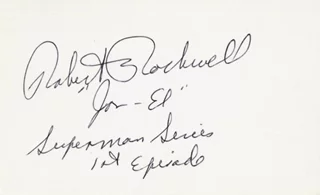 Robert Rockwell
"Jor-El"
Superman Series
1st Episode